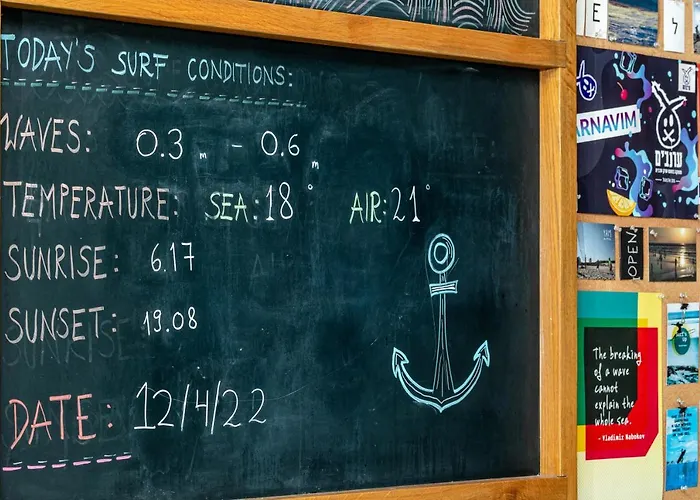 TODAY'S SURF CONDITIONS:
WAVES: 0.3 m - 0.6 m
TEMPERATURE: SEA: 18° AIR: 21°
SUNRISE: 6.17
SUNSET: 19.08
DATE: 12/4/22
E
ל
ARNAVIM
ערנבים
OPEN
The breaking
of a wave
cannot
explain the
whole sea.
- Vladimir Nabokov